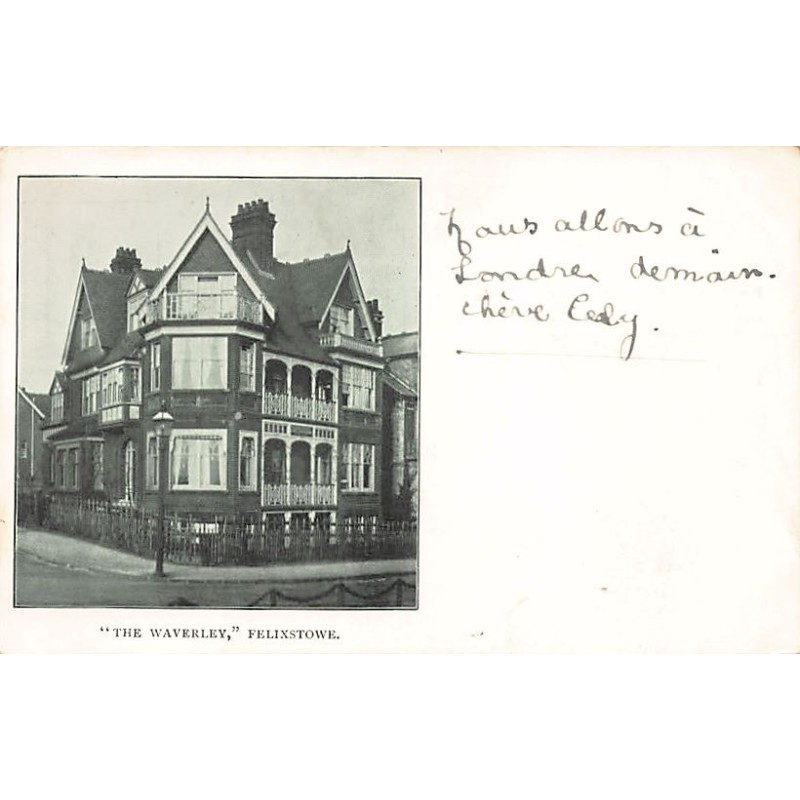 Nous allons à
Londres demain.
chère Cecly.
"THE WAVERLEY," FELIXSTOWE.